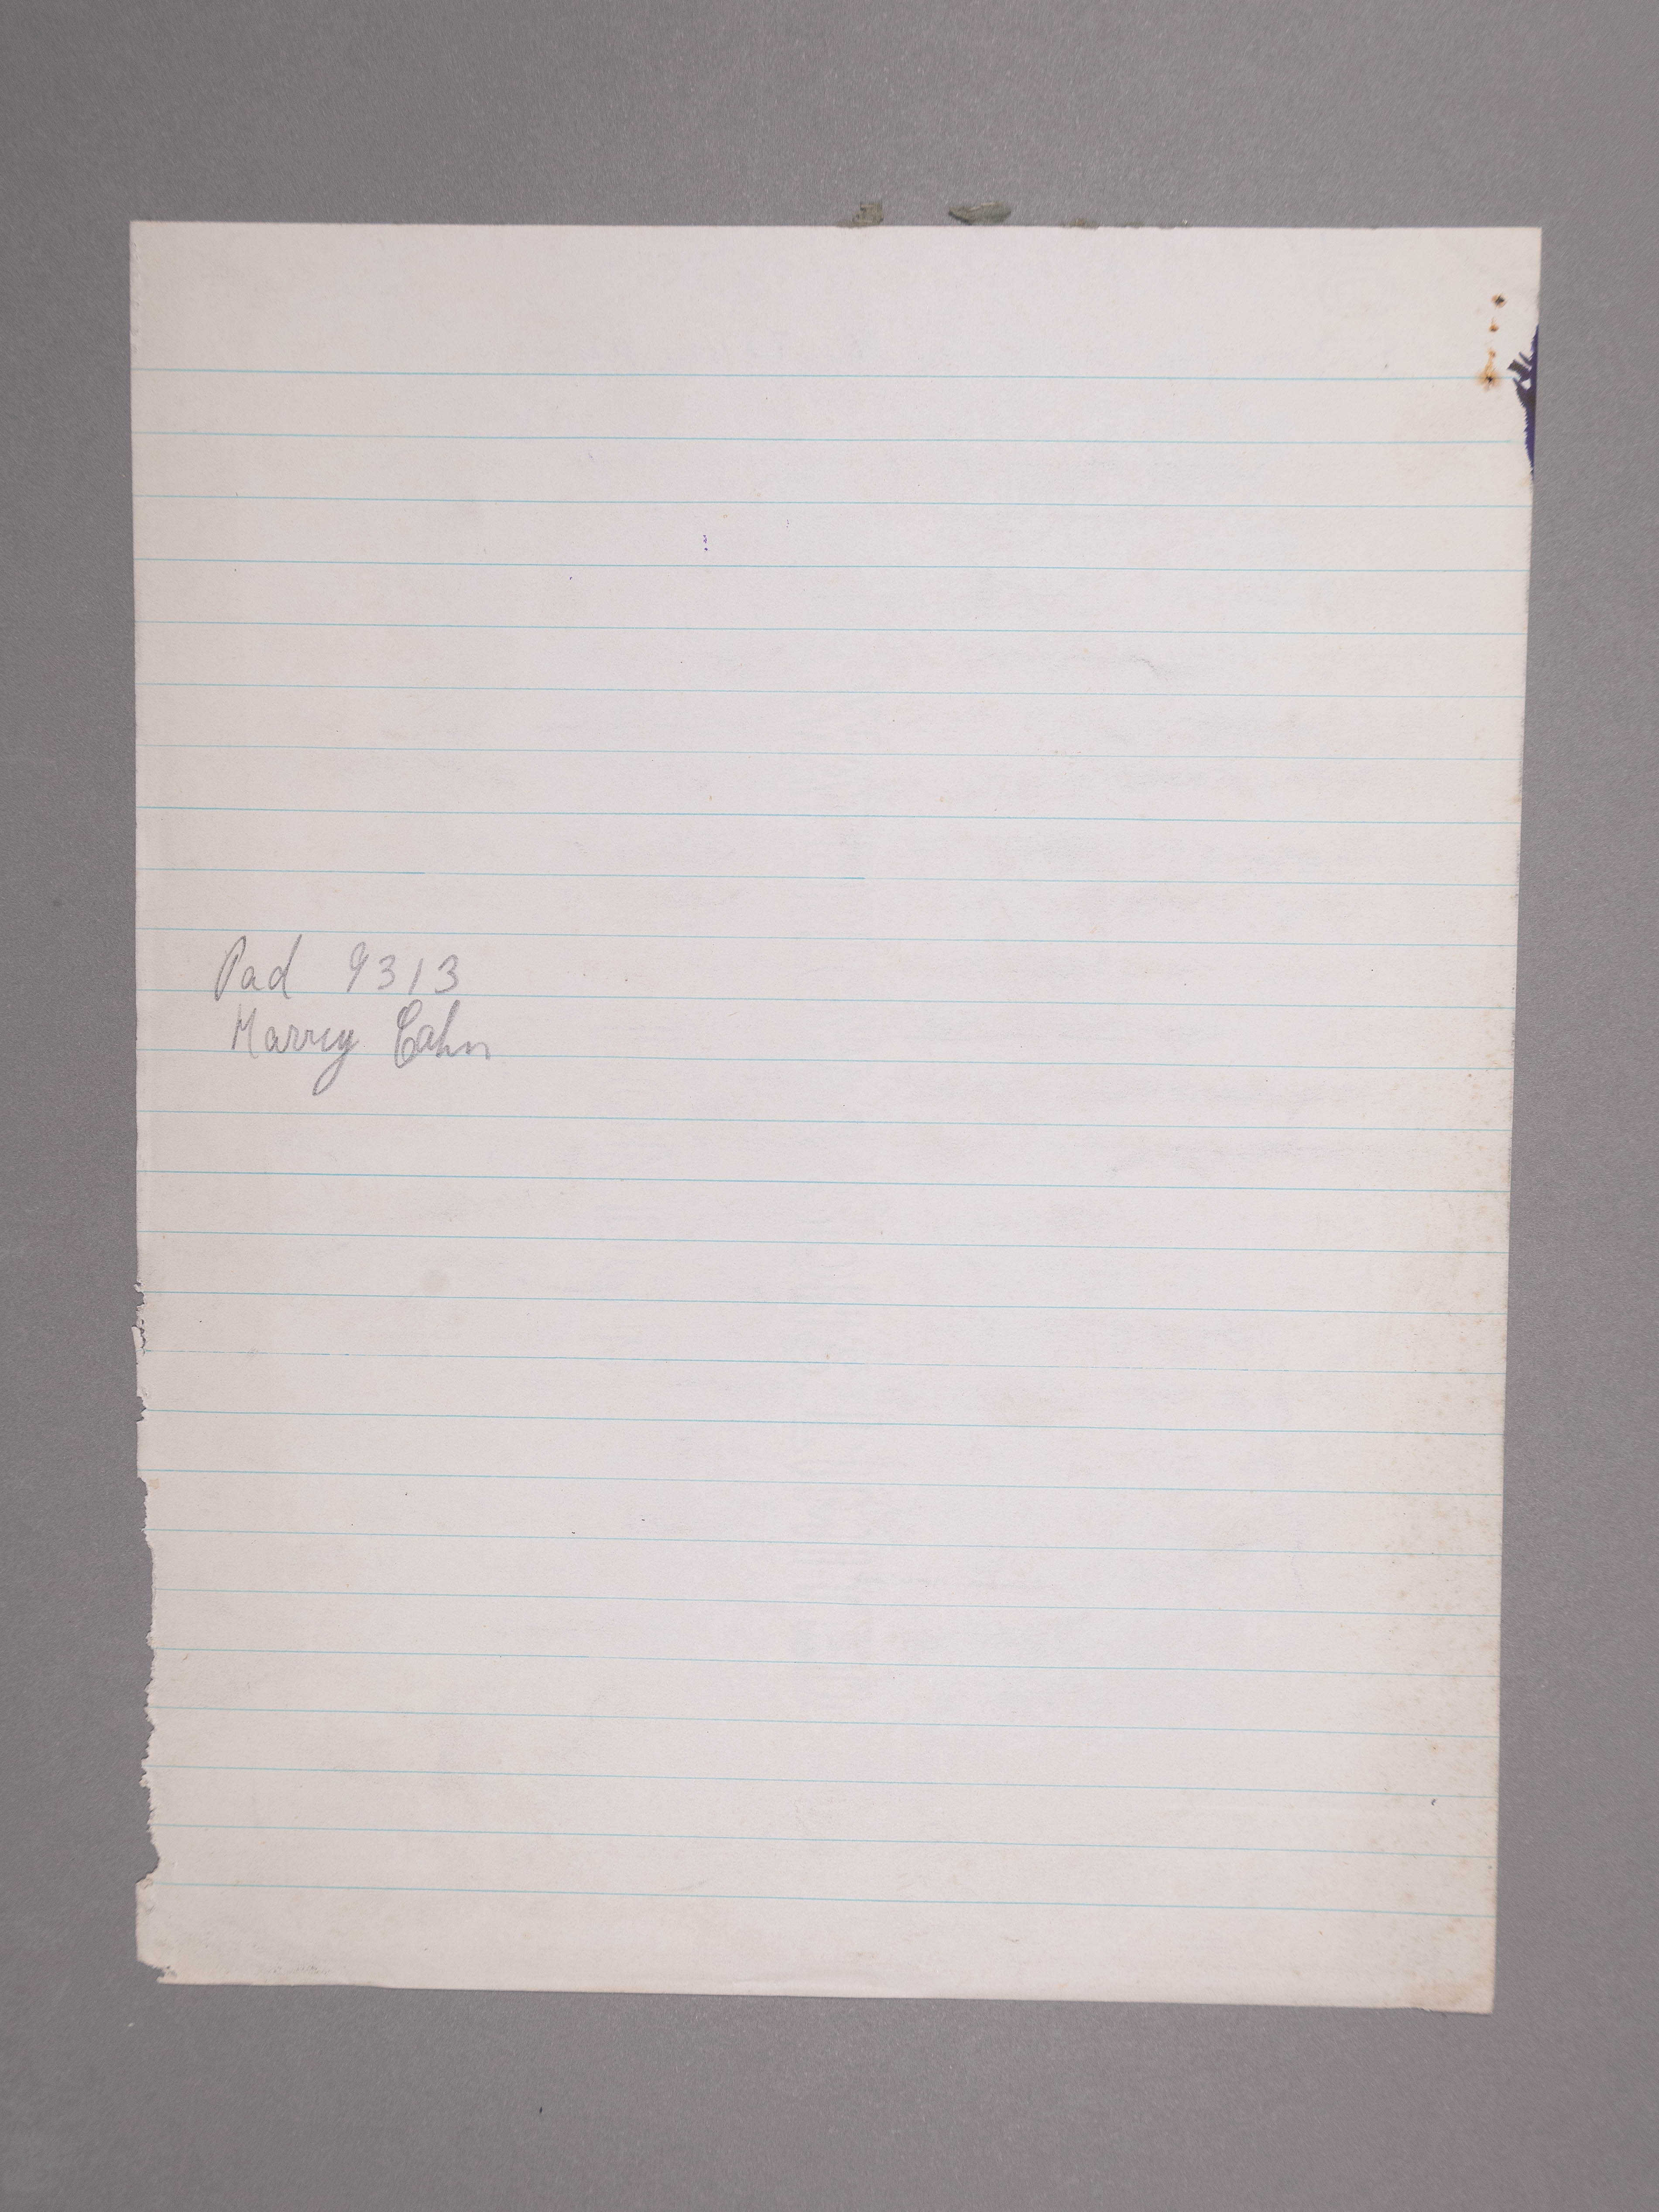 Pad 9313
Harry Cahn